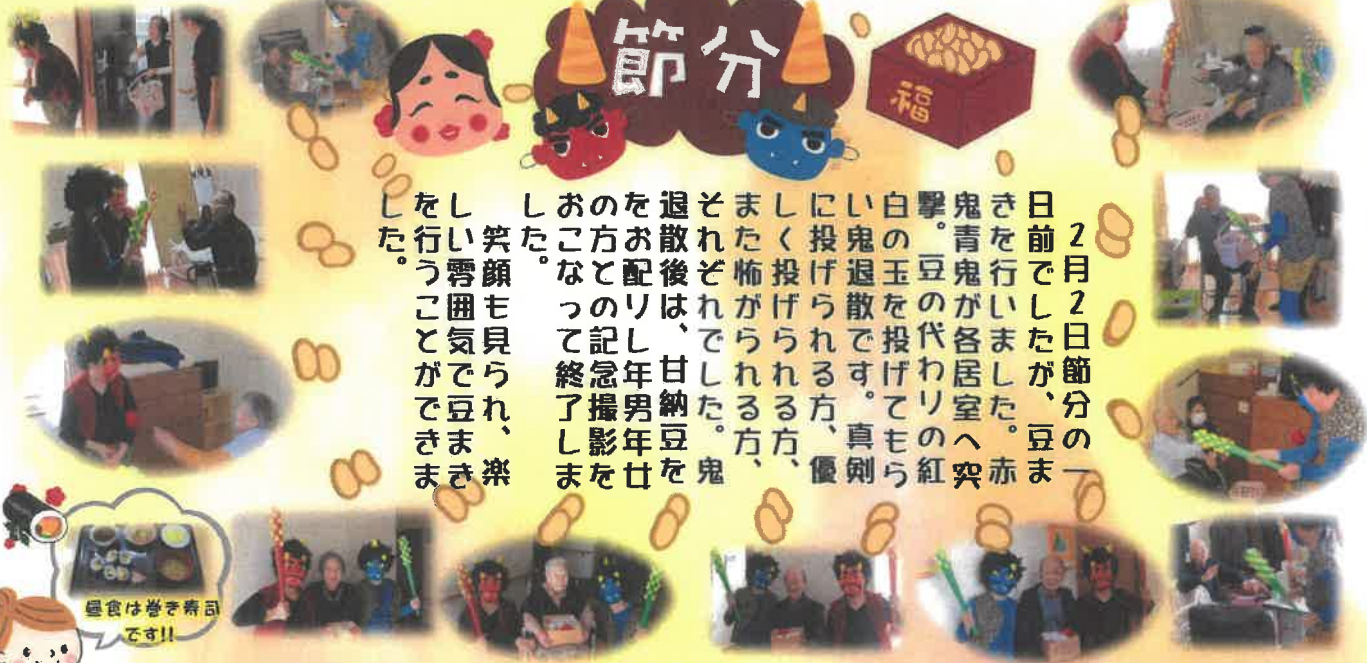 節分
福
２月２日節分の一
日前でしたが、豆ま
きを行いました。赤
鬼青鬼が各居室へ突
撃。豆の代わりの紅
白の玉を投げてもら
い鬼退散です。真剣
に投げられる方、優
しく投げられる方、
また怖がられる方、
それぞれでした。鬼
退散後は、甘納豆を
をお配りし年男年廿
の方との記念撮影を
おこなって終了しま
した。
笑顔も見られ、楽
しい雰囲気で豆まき
を行うことができま
した。
昼食は巻き寿司
です!!